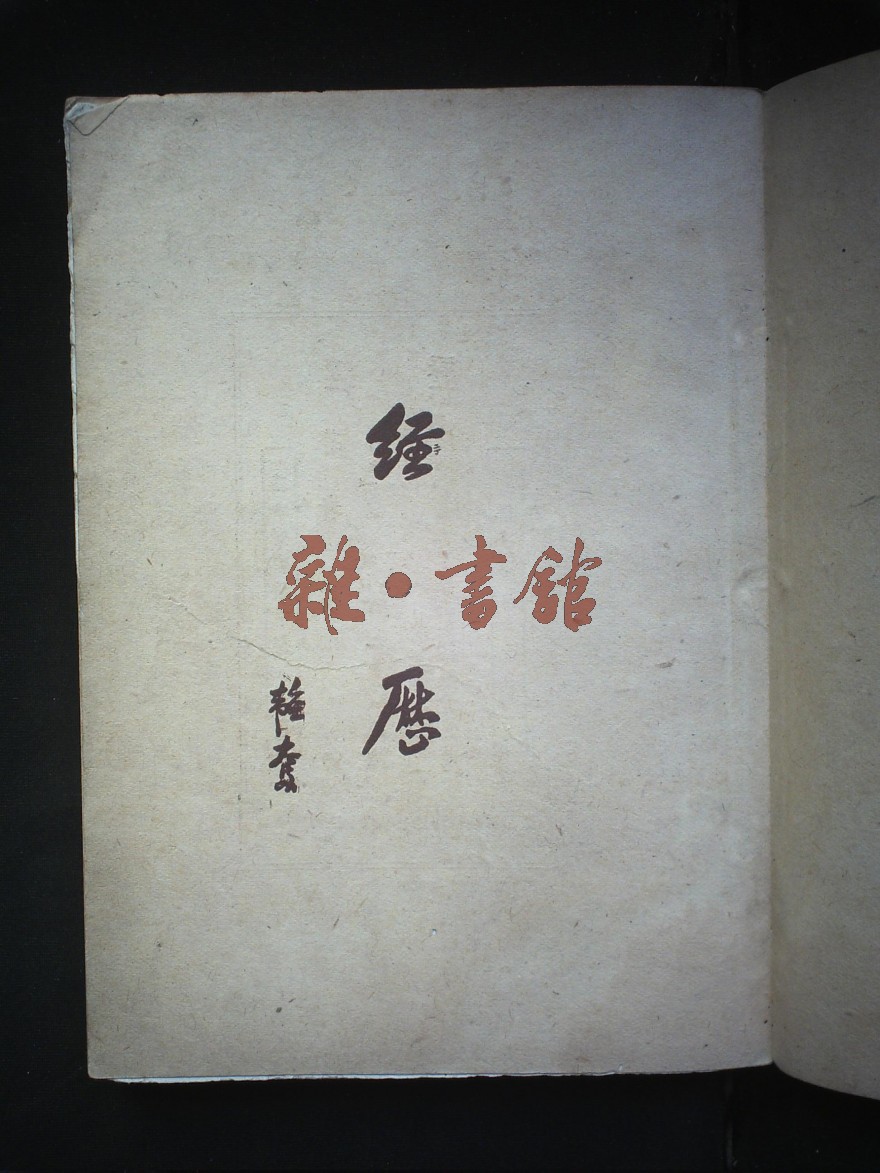 经
歷
韜奮
雜·書館